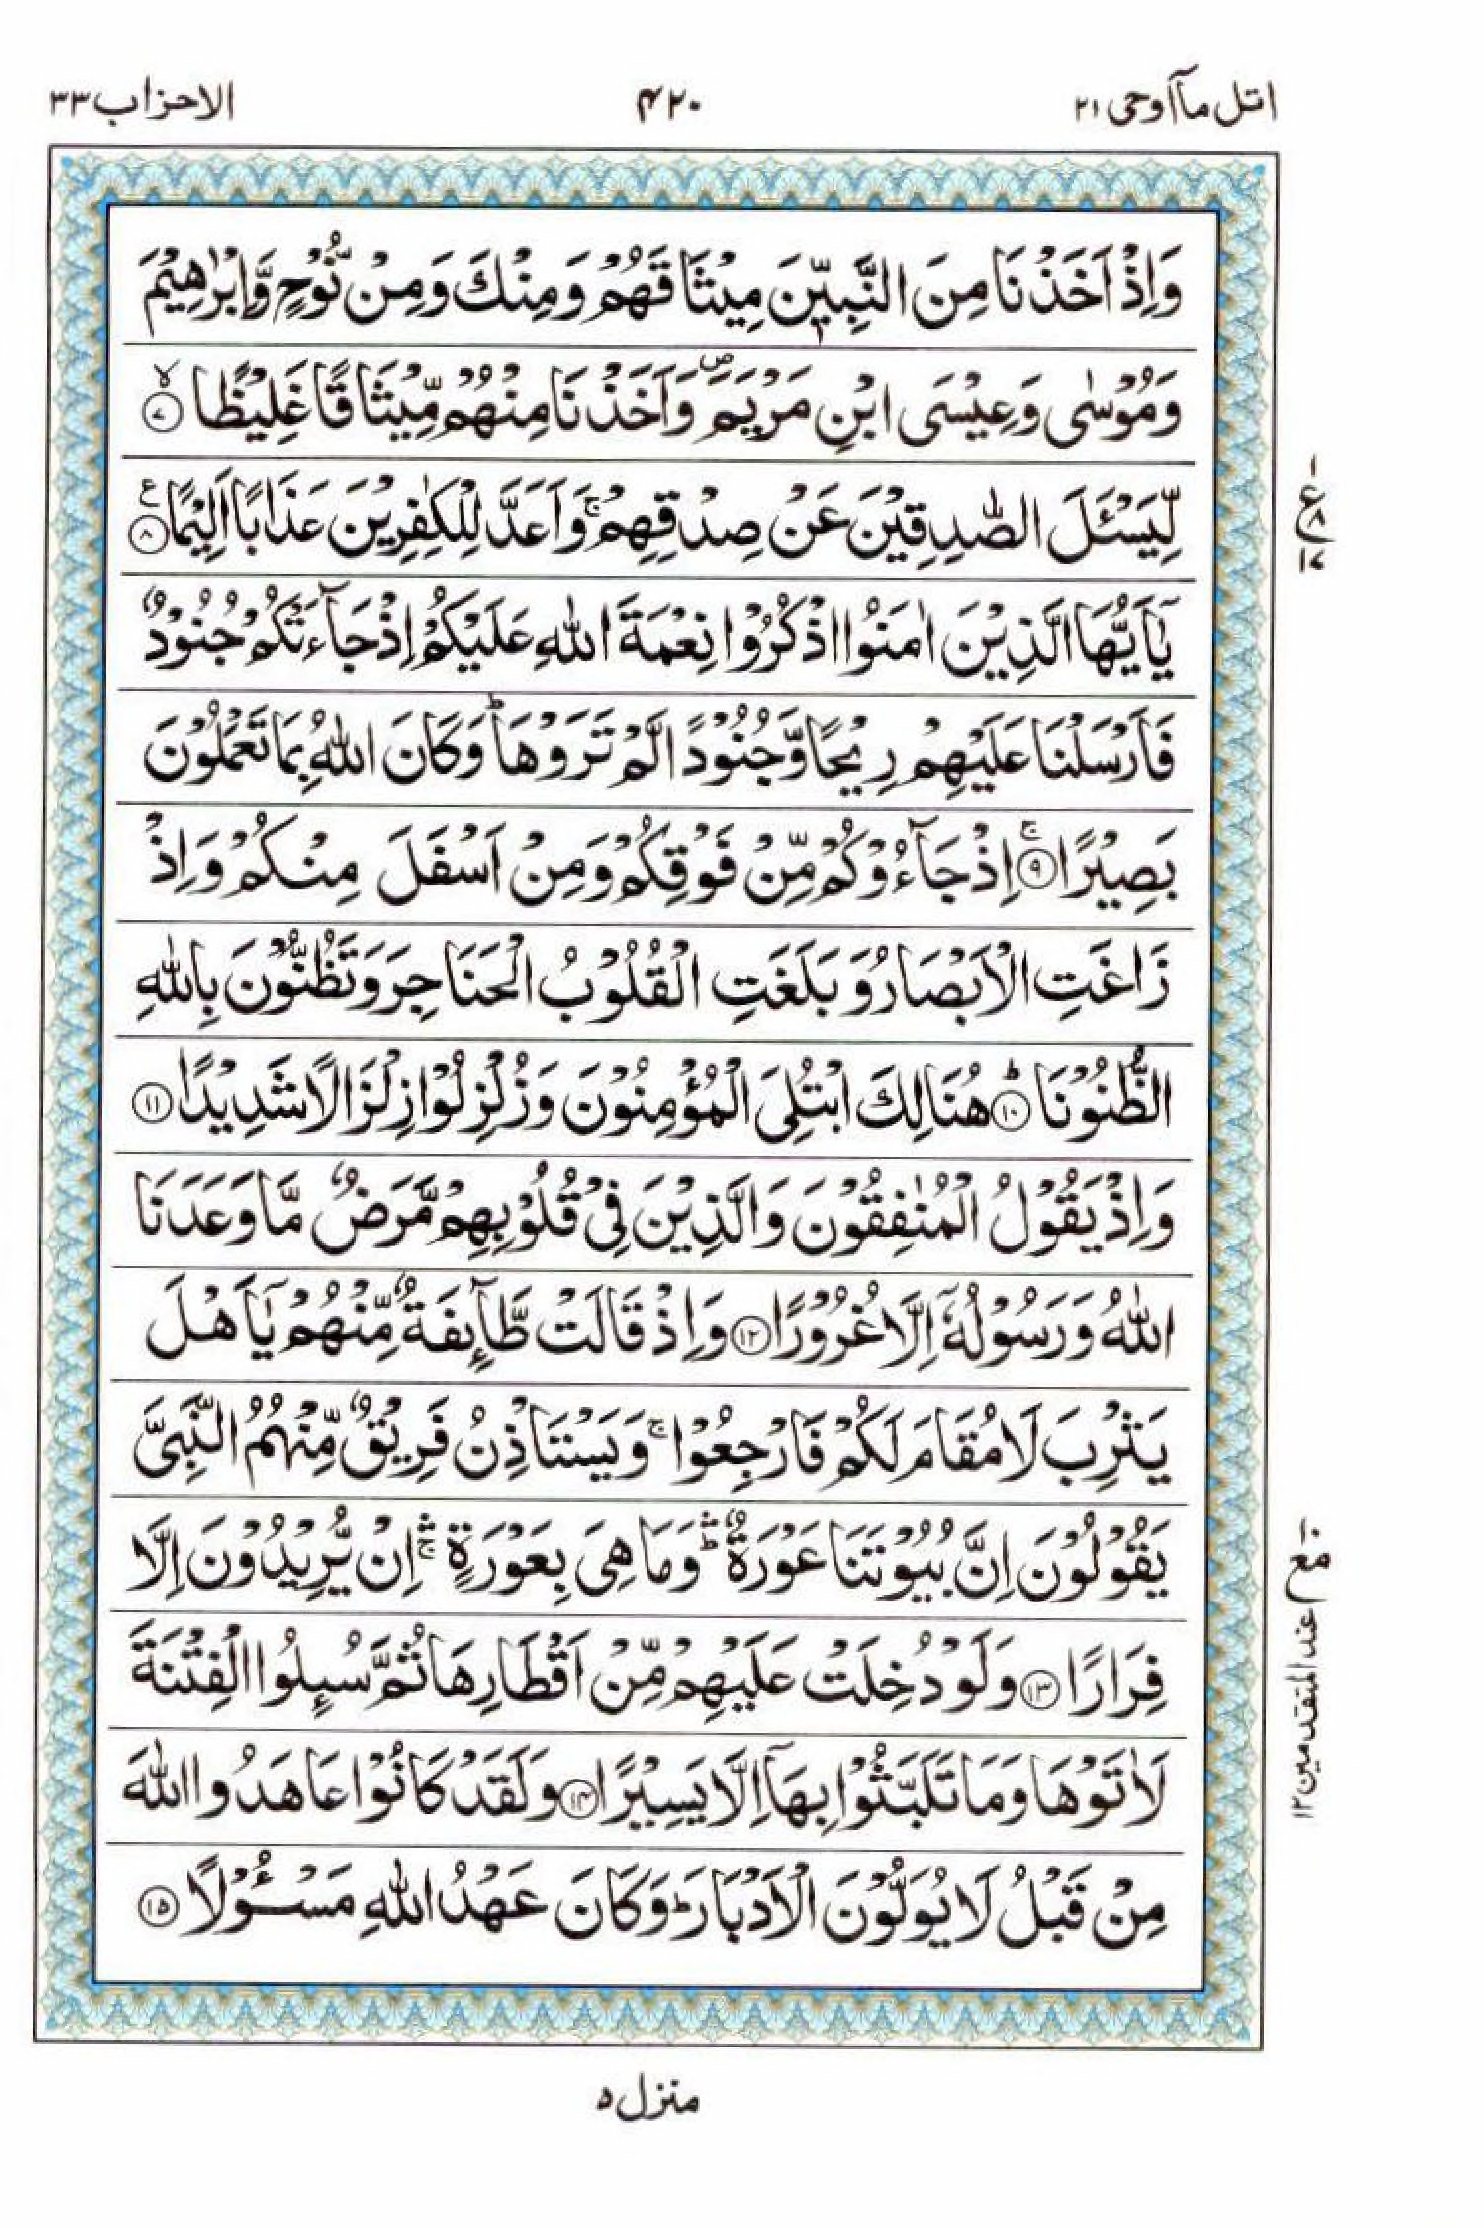 اتل مآاوحی ۲۱
۴۲۰
الاحزاب ۳۳
وَاِذْ اَخَذْنَا مِنَ النَّبِیّٖنَ مِیْثَاقَهُمْ وَمِنْكَ وَمِنْ نُّوْحٍ وَّاِبْرٰهِیْمَ
وَمُوْسٰی وَعِیْسَی ابْنِ مَرْیَمَ ۪ وَاَخَذْنَا مِنْهُمْ مِّیْثَاقًا غَلِیْظًا ۙ﴿۷﴾
لِّیَسْـَٔلَ الصّٰدِقِیْنَ عَنْ صِدْقِهِمْ ۚ وَاَعَدَّ لِلْكٰفِرِیْنَ عَذَابًا اَلِیْمًا ﴿۸﴾ ع
یٰۤاَیُّهَا الَّذِیْنَ اٰمَنُوا اذْكُرُوْا نِعْمَةَ اللّٰهِ عَلَیْكُمْ اِذْ جَآءَتْكُمْ جُنُوْدٌ
فَاَرْسَلْنَا عَلَیْهِمْ رِیْحًا وَّجُنُوْدًا لَّمْ تَرَوْهَا ؕ وَكَانَ اللّٰهُ بِمَا تَعْمَلُوْنَ
بَصِیْرًا ۚ﴿۹﴾ اِذْ جَآءُوْكُمْ مِّنْ فَوْقِكُمْ وَمِنْ اَسْفَلَ مِنْكُمْ وَاِذْ
زَاغَتِ الْاَبْصَارُ وَبَلَغَتِ الْقُلُوْبُ الْحَنَاجِرَ وَتَظُنُّوْنَ بِاللّٰهِ
الظُّنُوْنَا ؕ﴿۱۰﴾ هُنَالِكَ ابْتُلِیَ الْمُؤْمِنُوْنَ وَزُلْزِلُوْا زِلْزَالًا شَدِیْدًا ﴿۱۱﴾
وَاِذْ یَقُوْلُ الْمُنٰفِقُوْنَ وَالَّذِیْنَ فِیْ قُلُوْبِهِمْ مَّرَضٌ مَّا وَعَدَنَا
اللّٰهُ وَرَسُوْلُهٗۤ اِلَّا غُرُوْرًا ﴿۱۲﴾ وَاِذْ قَالَتْ طَّآىِٕفَةٌ مِّنْهُمْ یٰۤاَهْلَ
یَثْرِبَ لَا مُقَامَ لَكُمْ فَارْجِعُوْا ۚ وَیَسْتَاْذِنُ فَرِیْقٌ مِّنْهُمُ النَّبِیَّ
یَقُوْلُوْنَ اِنَّ بُیُوْتَنَا عَوْرَةٌ ۛؕ وَمَا هِیَ بِعَوْرَةٍ ۛۚ اِنْ یُّرِیْدُوْنَ اِلَّا
فِرَارًا ﴿۱۳﴾ وَلَوْ دُخِلَتْ عَلَیْهِمْ مِّنْ اَقْطَارِهَا ثُمَّ سُىِٕلُوا الْفِتْنَةَ
لَاٰتَوْهَا وَمَا تَلَبَّثُوْا بِهَاۤ اِلَّا یَسِیْرًا ﴿۱۴﴾ وَلَقَدْ كَانُوْا عَاهَدُوا اللّٰهَ
مِنْ قَبْلُ لَا یُوَلُّوْنَ الْاَدْبَارَ ؕ وَكَانَ عَهْدُ اللّٰهِ مَسْـُٔوْلًا ﴿۱۵﴾
ع ۸
مع عند المتقدمین ۱۲
منزل ۵